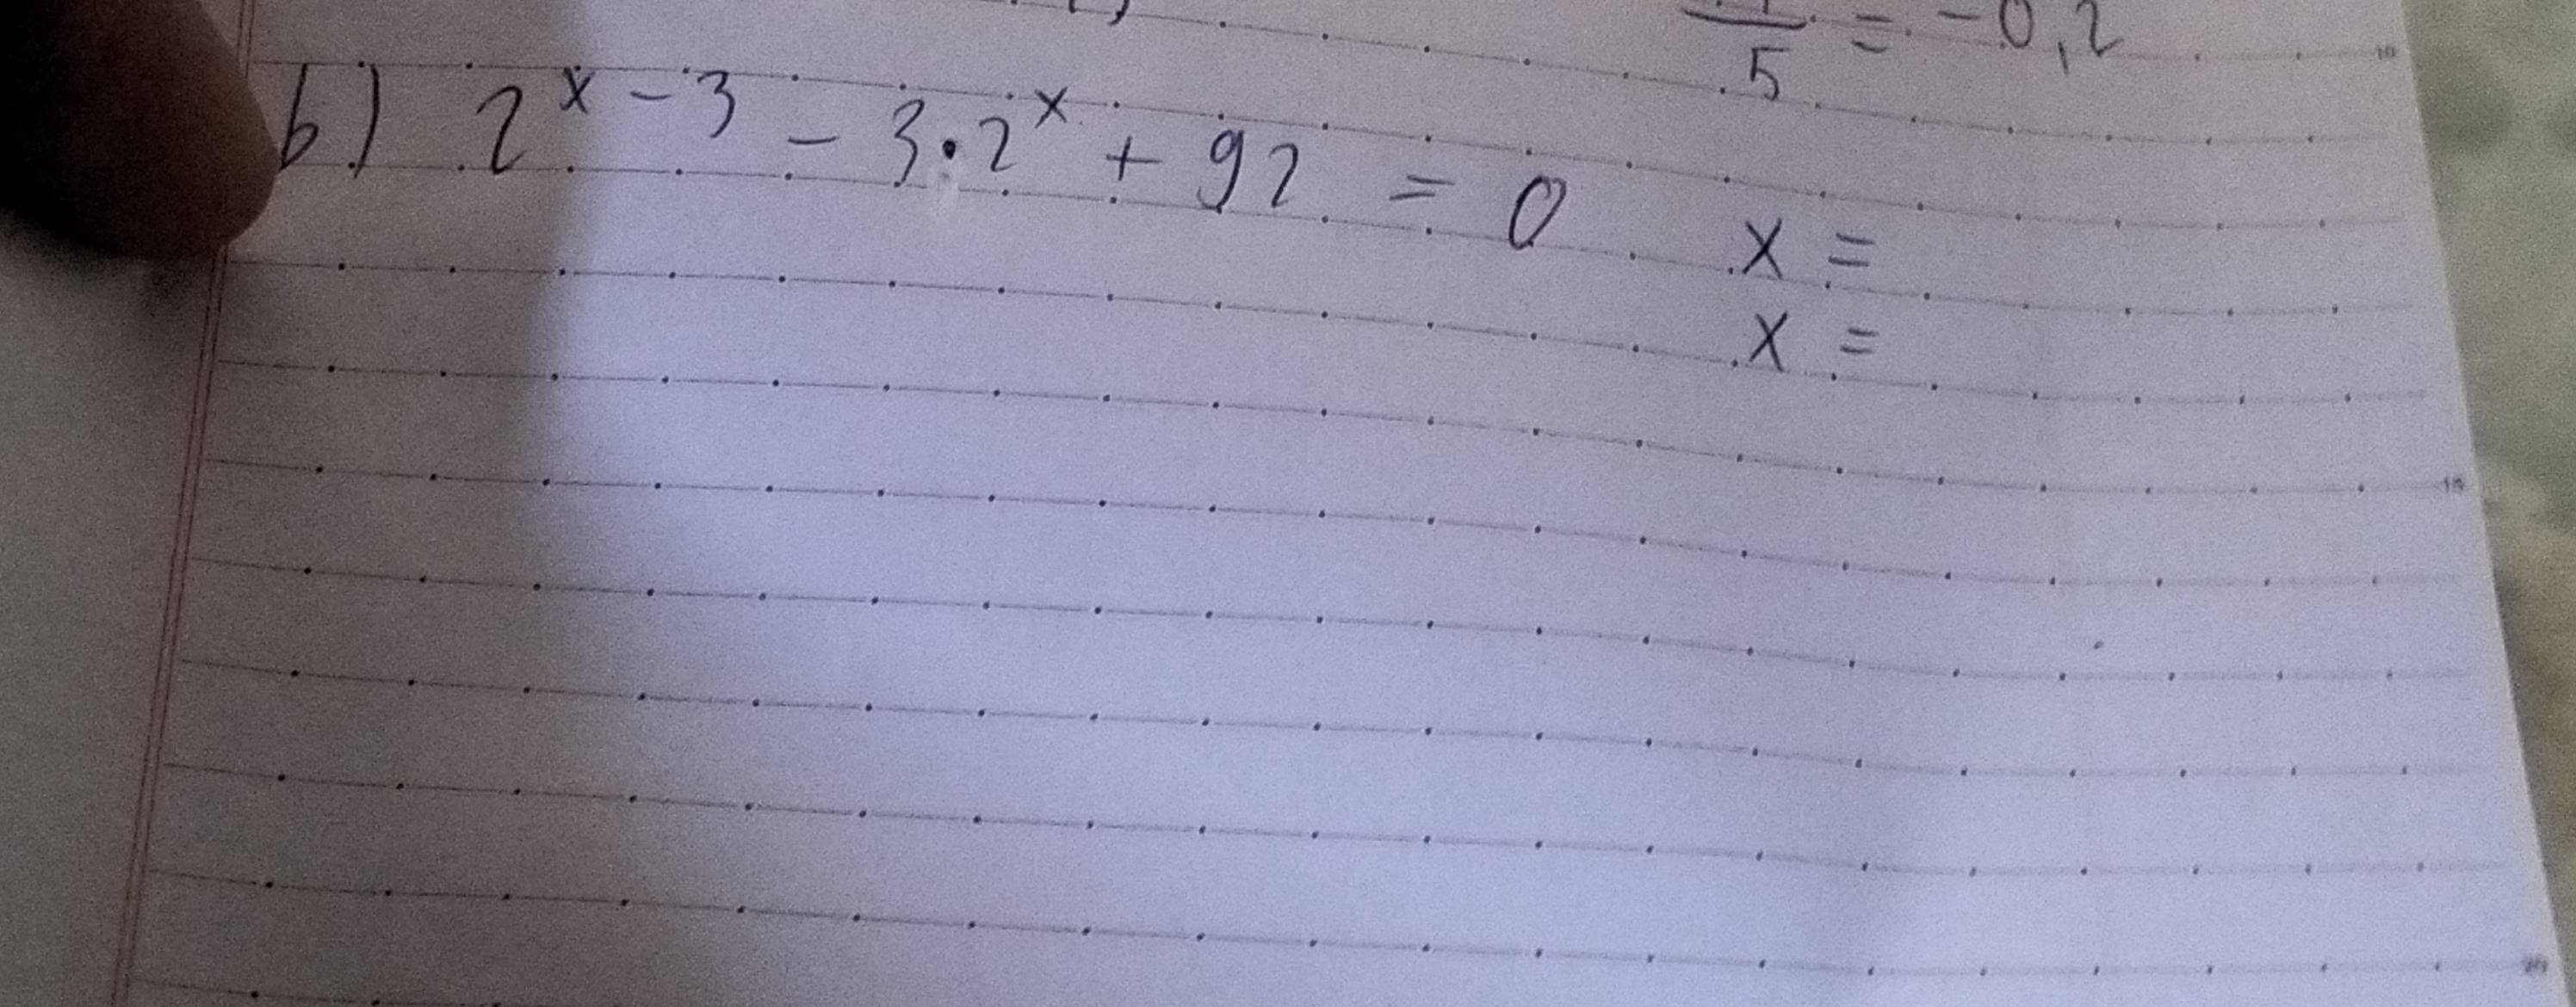 /5 = -0,2
b) 2^x-3 - 3·2^x + 92 = 0
x =
x =